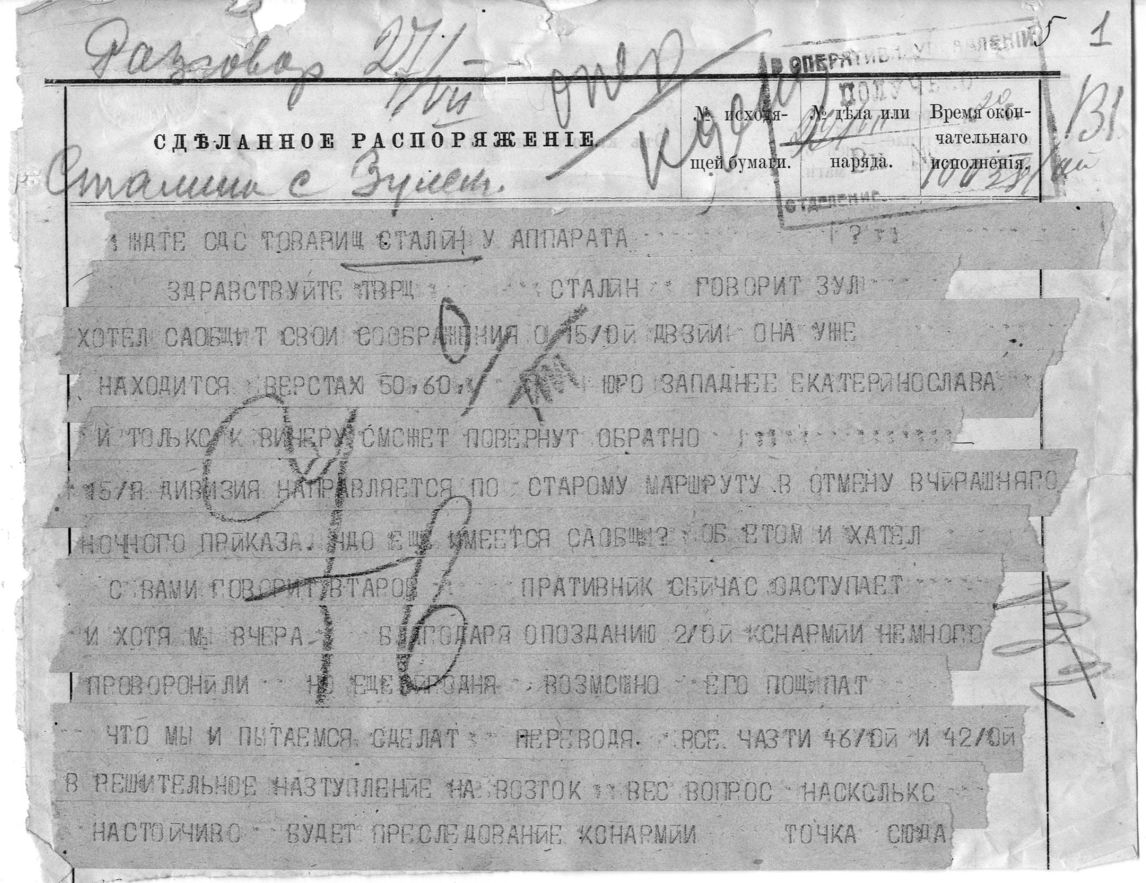 Разговор 27/VII
5 1
В ОПЕРАТИВ
СДѢЛАННОЕ РАСПОРЯЖЕНІЕ.
№ исходя-
щей бумаги.
№ дѣла или
наряда.
Время окон-
чательнаго
исполненія.
ОТДЕЛЕНИЕ
Сталина с
ЖДТЕ СДС ТОВАРИЩ СТАЛИН У АППАРАТА ?
ЗДРАВСТВУЙТЕ ТВРЩ СТАЛИН ГОВОРИТ ЗУЛ
ХОТЕЛ САОБЩИТ СВОИ СООБРАЖЕНИЯ О 15/ОЙ ДВЗЙИ ОНА УЖЕ
НАХОДИТСЯ ВЕРСТАХ 50,60, ЮРО ЗАПАДНЕЕ ЕКАТЕРИНОСЛАВА
И ТОЛЬКО К ВИЧЕРУ СМОЖЕТ ПОВЕРНУТ ОБРАТНО
15/Я ДИВИЗИЯ НАПРАВЛЯЕТСЯ ПО СТАРОМУ МАРШРУТУ В ОТМЕНУ ВЧЙРАШНЯГО
НОЧНОГО ПРИКАЗА. ЧДО ЕЩЕ ИМЕЕТСЯ САОБЩИ? ОБ ЕТОМ И ХАТЕЛ
С ВАМИ ГОВОРИТ ВТАРОЕ ПРАТИВНИК СЕЙЧАС ОДСТУПАЕТ
И ХОТЯ МЫ ВЧЕРА БЛАГОДАРЯ ОПОЗДАНИЮ 2/ОЙ КОНАРМИИ НЕМНОГО
ПРОВОРОНИЛИ НО ЕЩЕ ВОЗМОШНО ЕГО ПОЩИПАТ
ЧТО МЫ И ПЫТАЕМСЯ СДЕЛАТ ПЕРЕВОДЯ. ВСЕ ЧАЗТИ 46/ОЙ И 42/ОЙ
В РЕШИТЕЛЬНОЕ НАЗТУПЛЕНИЕ НА ВОЗТОК ВЕС ВОПРОС НАСКОЛЬКС
НАСТОЙЧИВО БУДЕТ ПРЕСЛЕДОВАНИЕ КОНАРМИИ ТОЧКА СЮДА